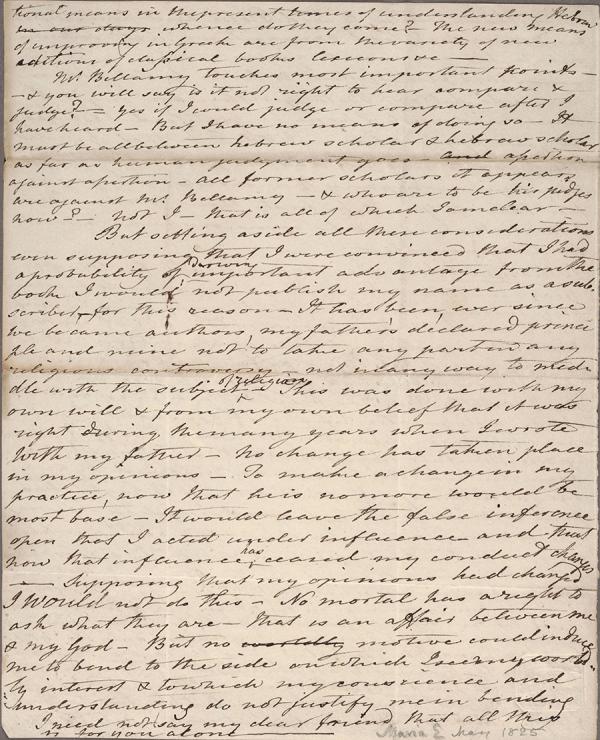 tional means in the present times of understanding Hebrew
in our days whence do they come? The new means
of improving in Greek are from the variety of new
editions of classical books lexicons &c —
Mr. Bellamy touches most important points —
— & you will say is it not right to hear compare &
judge? — yes if I could judge or compare after I
have heard — But I have no means of doing so — It
must be all between hebrew scholar & hebrew scholar
as far as human judgment goes and assertion
against assertion — all former scholars it appears
are against Mr. Bellamy — & who are to be his judges
now? — not I — that is all of which I am clear —
But setting aside all these considerations
even supposing that I were convinced that I had
a probability of deriving important advantage from the
book I would not publish my name as a sub-
scriber, for this reason — It has been, ever since
we became authors, my father's declared princi
ple and mine not to take any part in any
religious controversy — not in any way to med-
dle with the subject of religion — This was done with my
own will & from my own belief that it was
right during the many years when I wrote
with my father — No change has taken place
in my opinions — To make a change in my
practice, now that he is no more would be
most base — It would leave the false inference
open that I acted under influence and that
now that influence has ceased my conduct changes
— Supposing that my opinions had changed
I would not do this — No mortal has a right to
ask what they are — that is an affair between me
& my God — But no worldly motive could induce
me to bend to the side on which I see my world-
ly interest & to which my conscience and
understanding do not justify me in bending
I need not say my dear friend that all this
is for you alone
Maria E May 1825